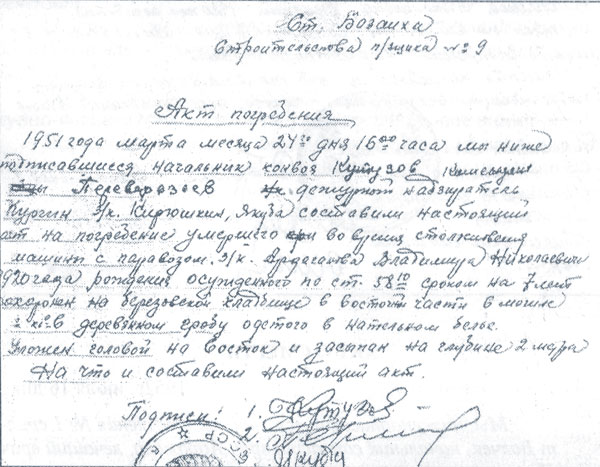 Ст. Бозаиха
Строительства п/ящика № 9
Акт погребения
1951 года марта месяца 24го дня 16 00 часа мы ниже
подписавшиеся начальник конвоя Кутузов комендант
Переверзоев дежурный надзиратель
Кургин з/к. Кирюшкин, Якуба составили настоящий
акт на погребение умершего во время столкновения
машины с паравозом. з/к. Ардасанова Владимира Николаевич
1920 года рождения осужденного по ст. 58 10 сроком на 7 лет
похоронен на березовской кладбище в восточн части в могиле
в деревянном гробу одетого в нательном белье.
Уложен головой на восток и засыпан на глубине 2 метра
На что и составили настоящий акт.
Подписи: 1. Кутузов
2.
Якуба
СССР